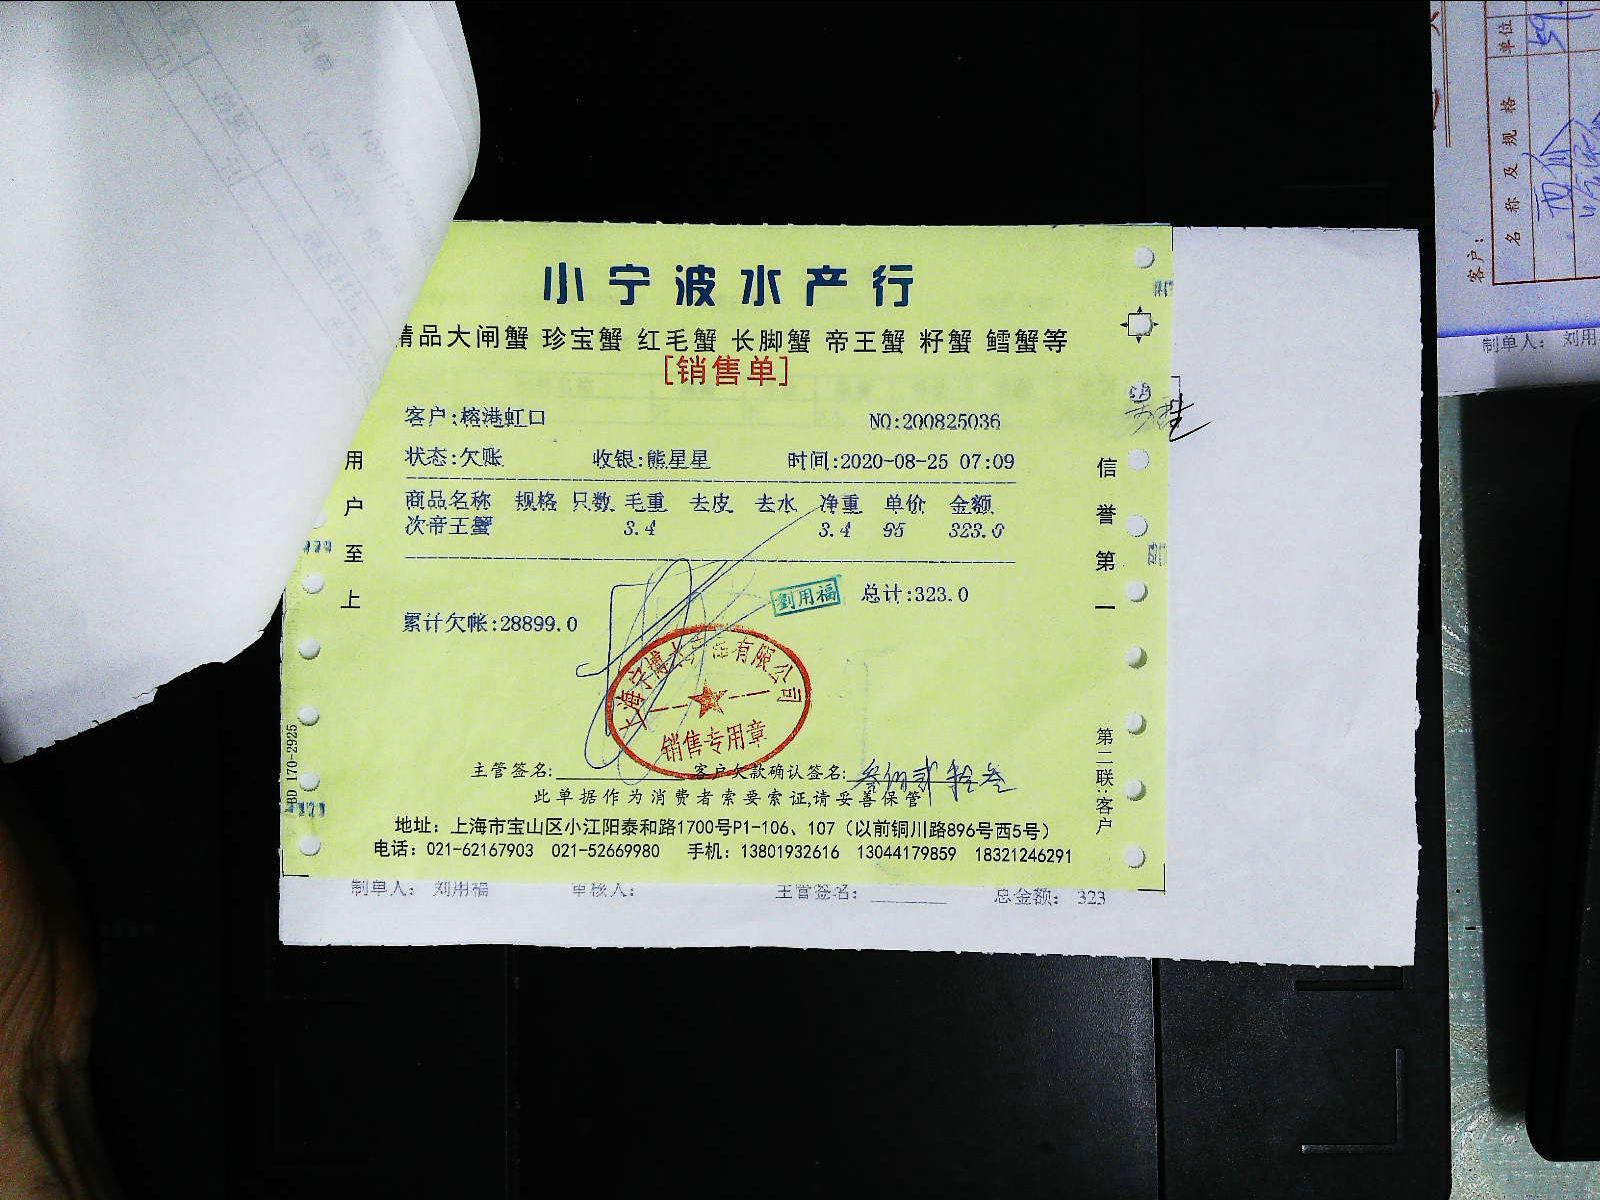 小宁波水产行
精品大闸蟹 珍宝蟹 红毛蟹 长脚蟹 帝王蟹 籽蟹 鳕蟹等
[销售单]
客户:榕港虹口 NO:200825036
状态:欠账 收银:熊星星 时间:2020-08-25 07:09
商品名称 规格 只数 毛重 去皮 去水 净重 单价 金额
次帝王蟹 3.4 3.4 95 323.0
总计:323.0
劉用福
累计欠帐:28899.0
上海宁博水产品有限公司
销售专用章
主管签名: 客户欠款确认签名: 叁佰贰拾叁
此单据作为消费者索要索证,请妥善保管
地址：上海市宝山区小江阳泰和路1700号P1-106、107（以前铜川路896号西5号）
电话：021-62167903 021-52669980 手机：13801932616 13044179859 18321246291
用户至上
信誉第一
第二联:客户
BD 170-2925
制单人： 刘用福 审核人： 主管签名： 总金额： 323
客户：
名称及规格 单位
制单人： 刘用